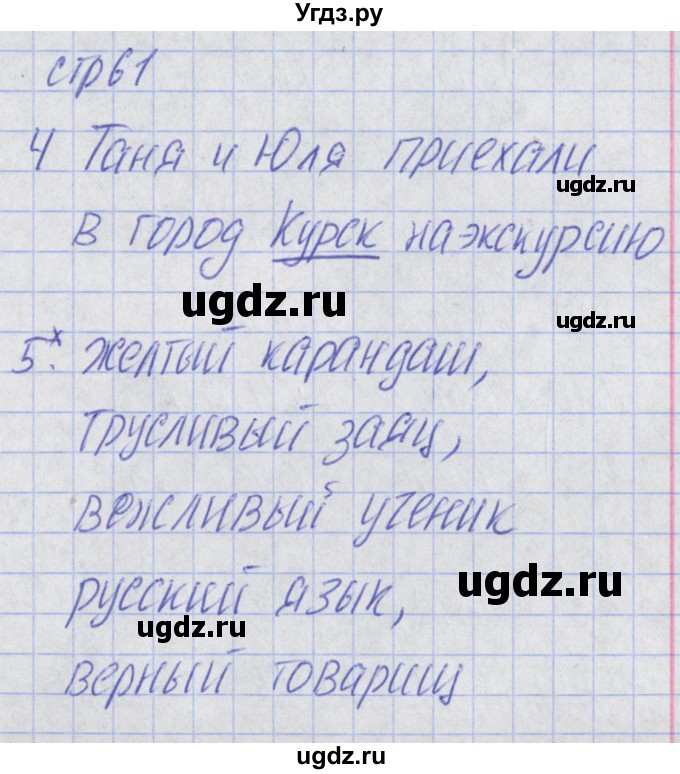 Угдз.ру
стр61
4 Таня и Юля приехали
ugdz.ru
в город Курск на экскурсию
ugdz.ru
ugdz.ru
5.х желтый карандаш,
трусливый заяц,
вежливый ученик
ugdz.ru
русский язык,
ugdz.ru
верный товарищ
ugdz.ru